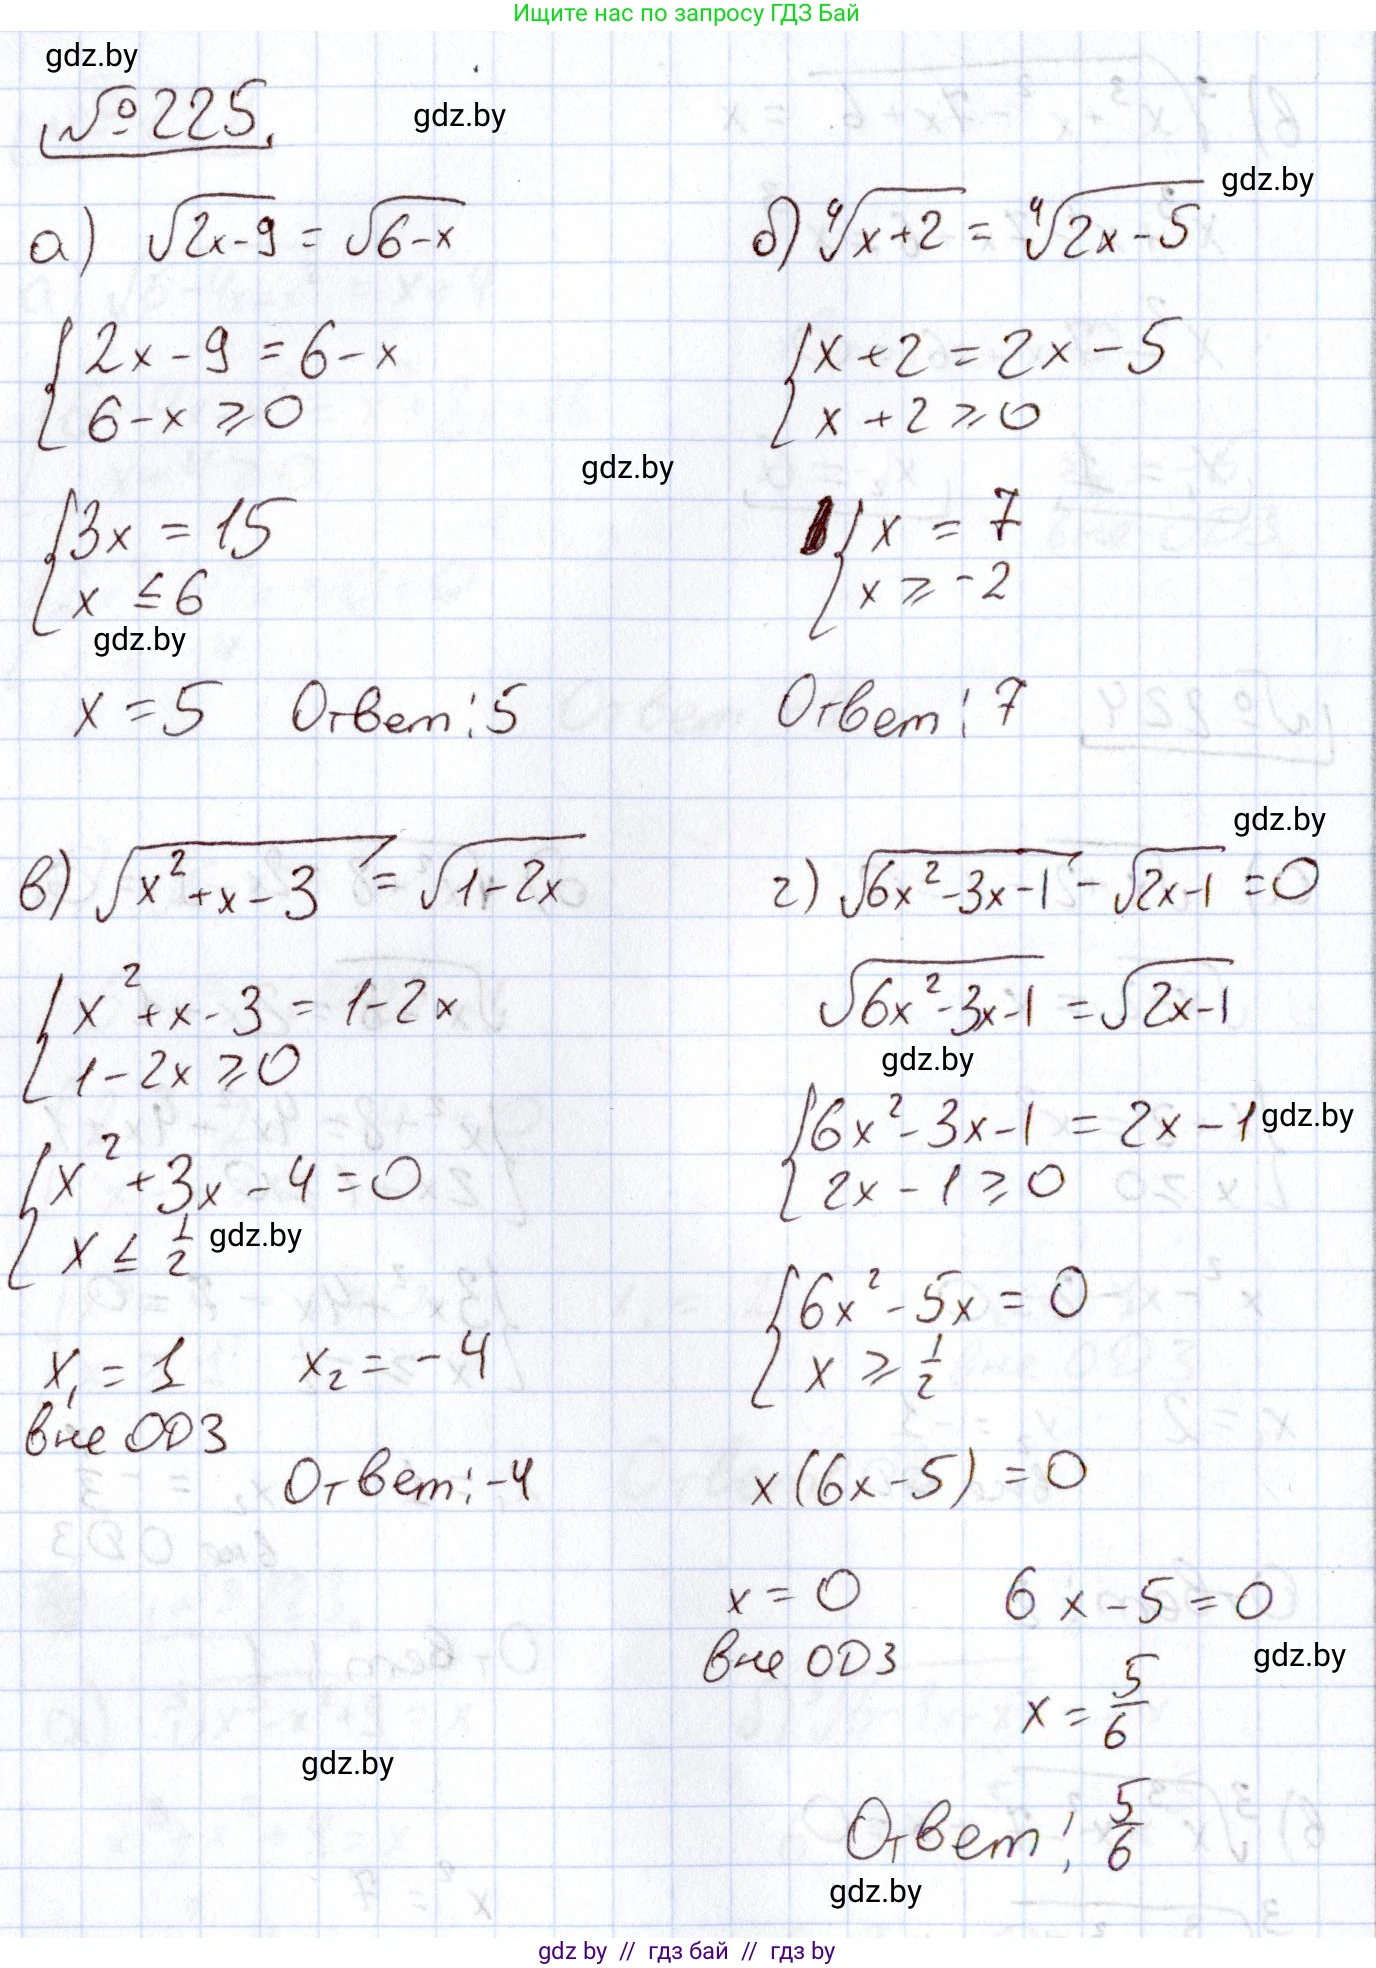 Ищите нас по запросу ГДЗ Бай
gdz.by
№225.
gdz.by
а) √(2x-9) = √(6-x)
{2x-9 = 6-x
6-x ⩾ 0
gdz.by
{3x = 15
x ≤ 6
gdz.by
x = 5 Ответ: 5
gdz.by
б) ⁴√(x+2) = ⁴√(2x-5)
{x+2 = 2x-5
x+2 ⩾ 0
{x = 7
x ⩾ -2
Ответ: 7
в) √(x²+x-3) = √(1-2x)
{x²+x-3 = 1-2x
1-2x ⩾ 0
{x²+3x-4 = 0
x ≤ 1/2
gdz.by
x₁ = 1 x₂ = -4
вне ОДЗ
Ответ: -4
gdz.by
gdz.by
г) √(6x²-3x-1) - √(2x-1) = 0
√(6x²-3x-1) = √(2x-1)
gdz.by
{6x²-3x-1 = 2x-1
gdz.by
2x-1 ⩾ 0
{6x²-5x = 0
x ⩾ 1/2
x(6x-5) = 0
x = 0 6x-5 = 0
вне ОДЗ
gdz.by
x = 5/6
Ответ: 5/6
gdz.by
gdz by // гдз бай // гдз by